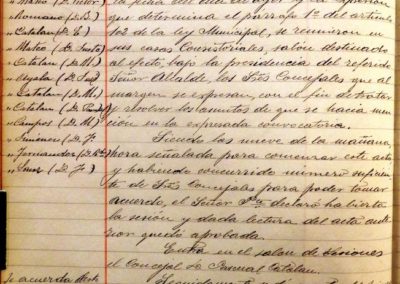 " Mano (D. Victor)
la fecha del dia de ayer y la
que determina el parrafo 1º del articulo
" Romano (D. L.)
102 de la ley Municipal, se reunieron en
" Catalan (D. E.)
sus casas Consistoriales, salón destinado
" Mateo (D. Justo)
al efecto, bajo la presidencia del referido
" Catalan (D. M.)
Señor Alcalde los Sres Concejales que al
" Ayala (D. José)
margen se espresan, con el fin de tratar
" Catalan (D. M.)
y resolver los asuntos de que se hacia men
" Catalan (D.
ción en la espresada convocatoria.
" Campos (D. M.)
Siendo las nueve de la mañana,
" Jimenez (D. J.
hora señalada para comenzar este acto
" Fernandez (D.
y habiendo concurrido número suficien
" Sanz (D. J.)
te de Sres Concejales para poder tomar
acuerdo, el Señor Pte declaró habierta
la sesión y dada lectura del acta ante
rior quedó aprobada.
Entra en el salon de sesiones
el Concejal D. Pascual Catalan.
Se acuerda